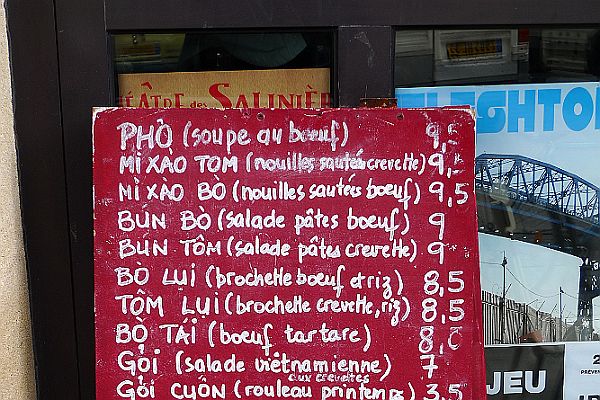 THÉÂTRE des SALINIÈR
FLESHTON
PHỞ (soupe au bœuf) 9,5
MÌ XAO TOM (nouilles sautés crevette) 9,5
MÌ XAO BÒ (nouilles sautées boeuf) 9,5
BÚN BÒ (salade pâtes boeuf) 9
BUN TÔM (salade pâtes crevette) 9
BÒ LUI (brochette boeuf et riz) 8,5
TÔM LUI (brochette crevette, riz) 8,5
BÒ TÁI (boeuf tartare)
GỎI (salade viêtnamienne) 7
aux crevettes
GỎI CUÔN (rouleau printemps) 3,5
JEU